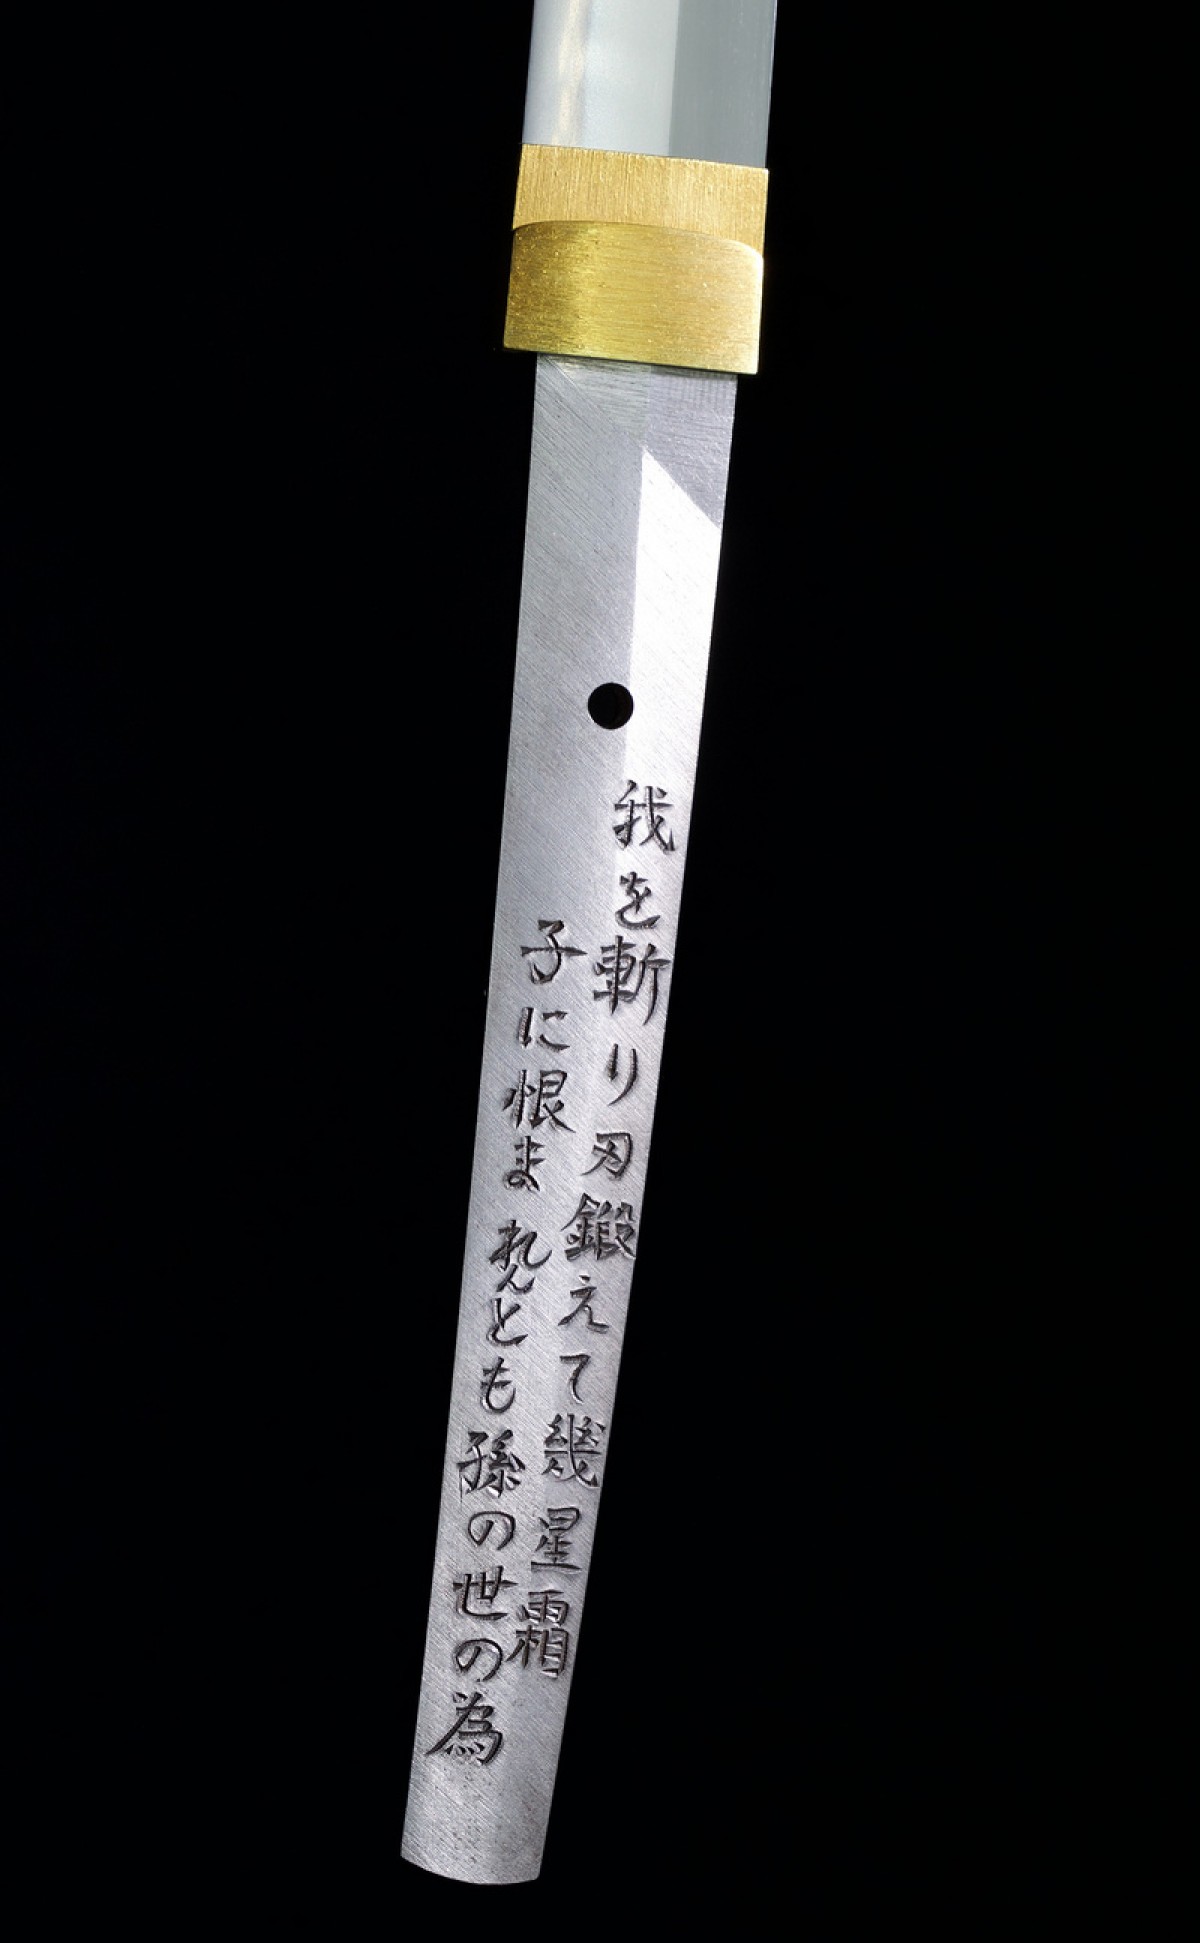 我を斬り刃鍛えて幾星霜
子に恨まれんとも孫の世の為